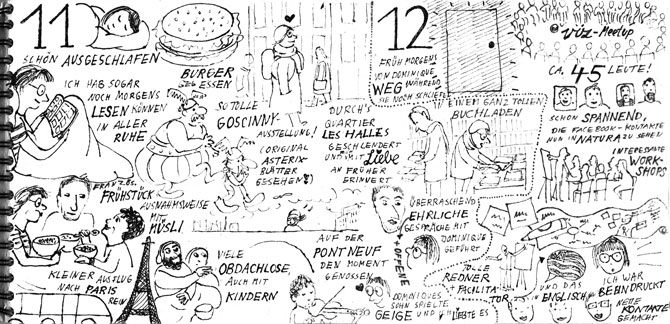 11
SCHÖN AUSGESCHLAFEN
ICH HAB SOGAR
NOCH MORGENS
LESEN KÖNNEN
IN ALLER
RUHE
BURGER
GEGESSEN
SO TOLLE
GOSCINNY-
AUSSTELLUNG!
(ORIGINAL
ASTERIX-
BLÄTTER
GESEHEN!)
DURCH'S
QUARTIER
LES HALLES
GESCHLENDERT
UND MIT Liebe
AN FRÜHER
ERINNERT
FRANZÖS.
FRÜHSTÜCK
AUSNAHMSWEISE
MIT
MÜSLI
KLEINER AUSFLUG
NACH PARIS
REIN
VIELE
OBDACHLOSE,
AUCH MIT
KINDERN
AUF DER
PONT NEUF
DEN MOMENT
GENOSSEN
12
FRÜH MORGENS
VON DOMINIQUE
WEG WÄHREND
SIE NOCH SCHLIEF
IN EINEM GANZ TOLLEN
BUCHLADEN
ÜBERRASCHEND
EHRLICHE
+ OFFENE
GESPRÄCHE MIT
DOMINIQUE
GEFÜHRT
DOMINIQUES
SOHN SPIELTE
GEIGE UND ICH LIEBTE ES
VÖZ-MEETUP
CA. 45 LEUTE!
SCHON SPANNEND,
DIE FACEBOOK-KONTAKTE
NUN IN NATURA ZU SEHEN
INTERESSANTE
WORK-
SHOPS
TOLLE
REDNER
+ FACILITA
TOR
UND DAS
IN ENGLISCH
ICH WAR
BEEINDRUCKT
NEUE
KONTAKTE
GEMACHT